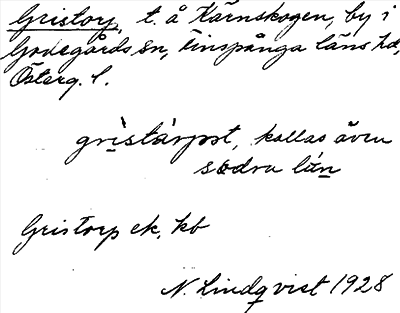 Gristorp, t. å Kärnskogen, by i
Godegårds sn, Finspånga läns hd,
Österg. l.
gri̱stàrpət, kallas även
södra lún
Gristorp ek, kb
N. Lindqvist 1928